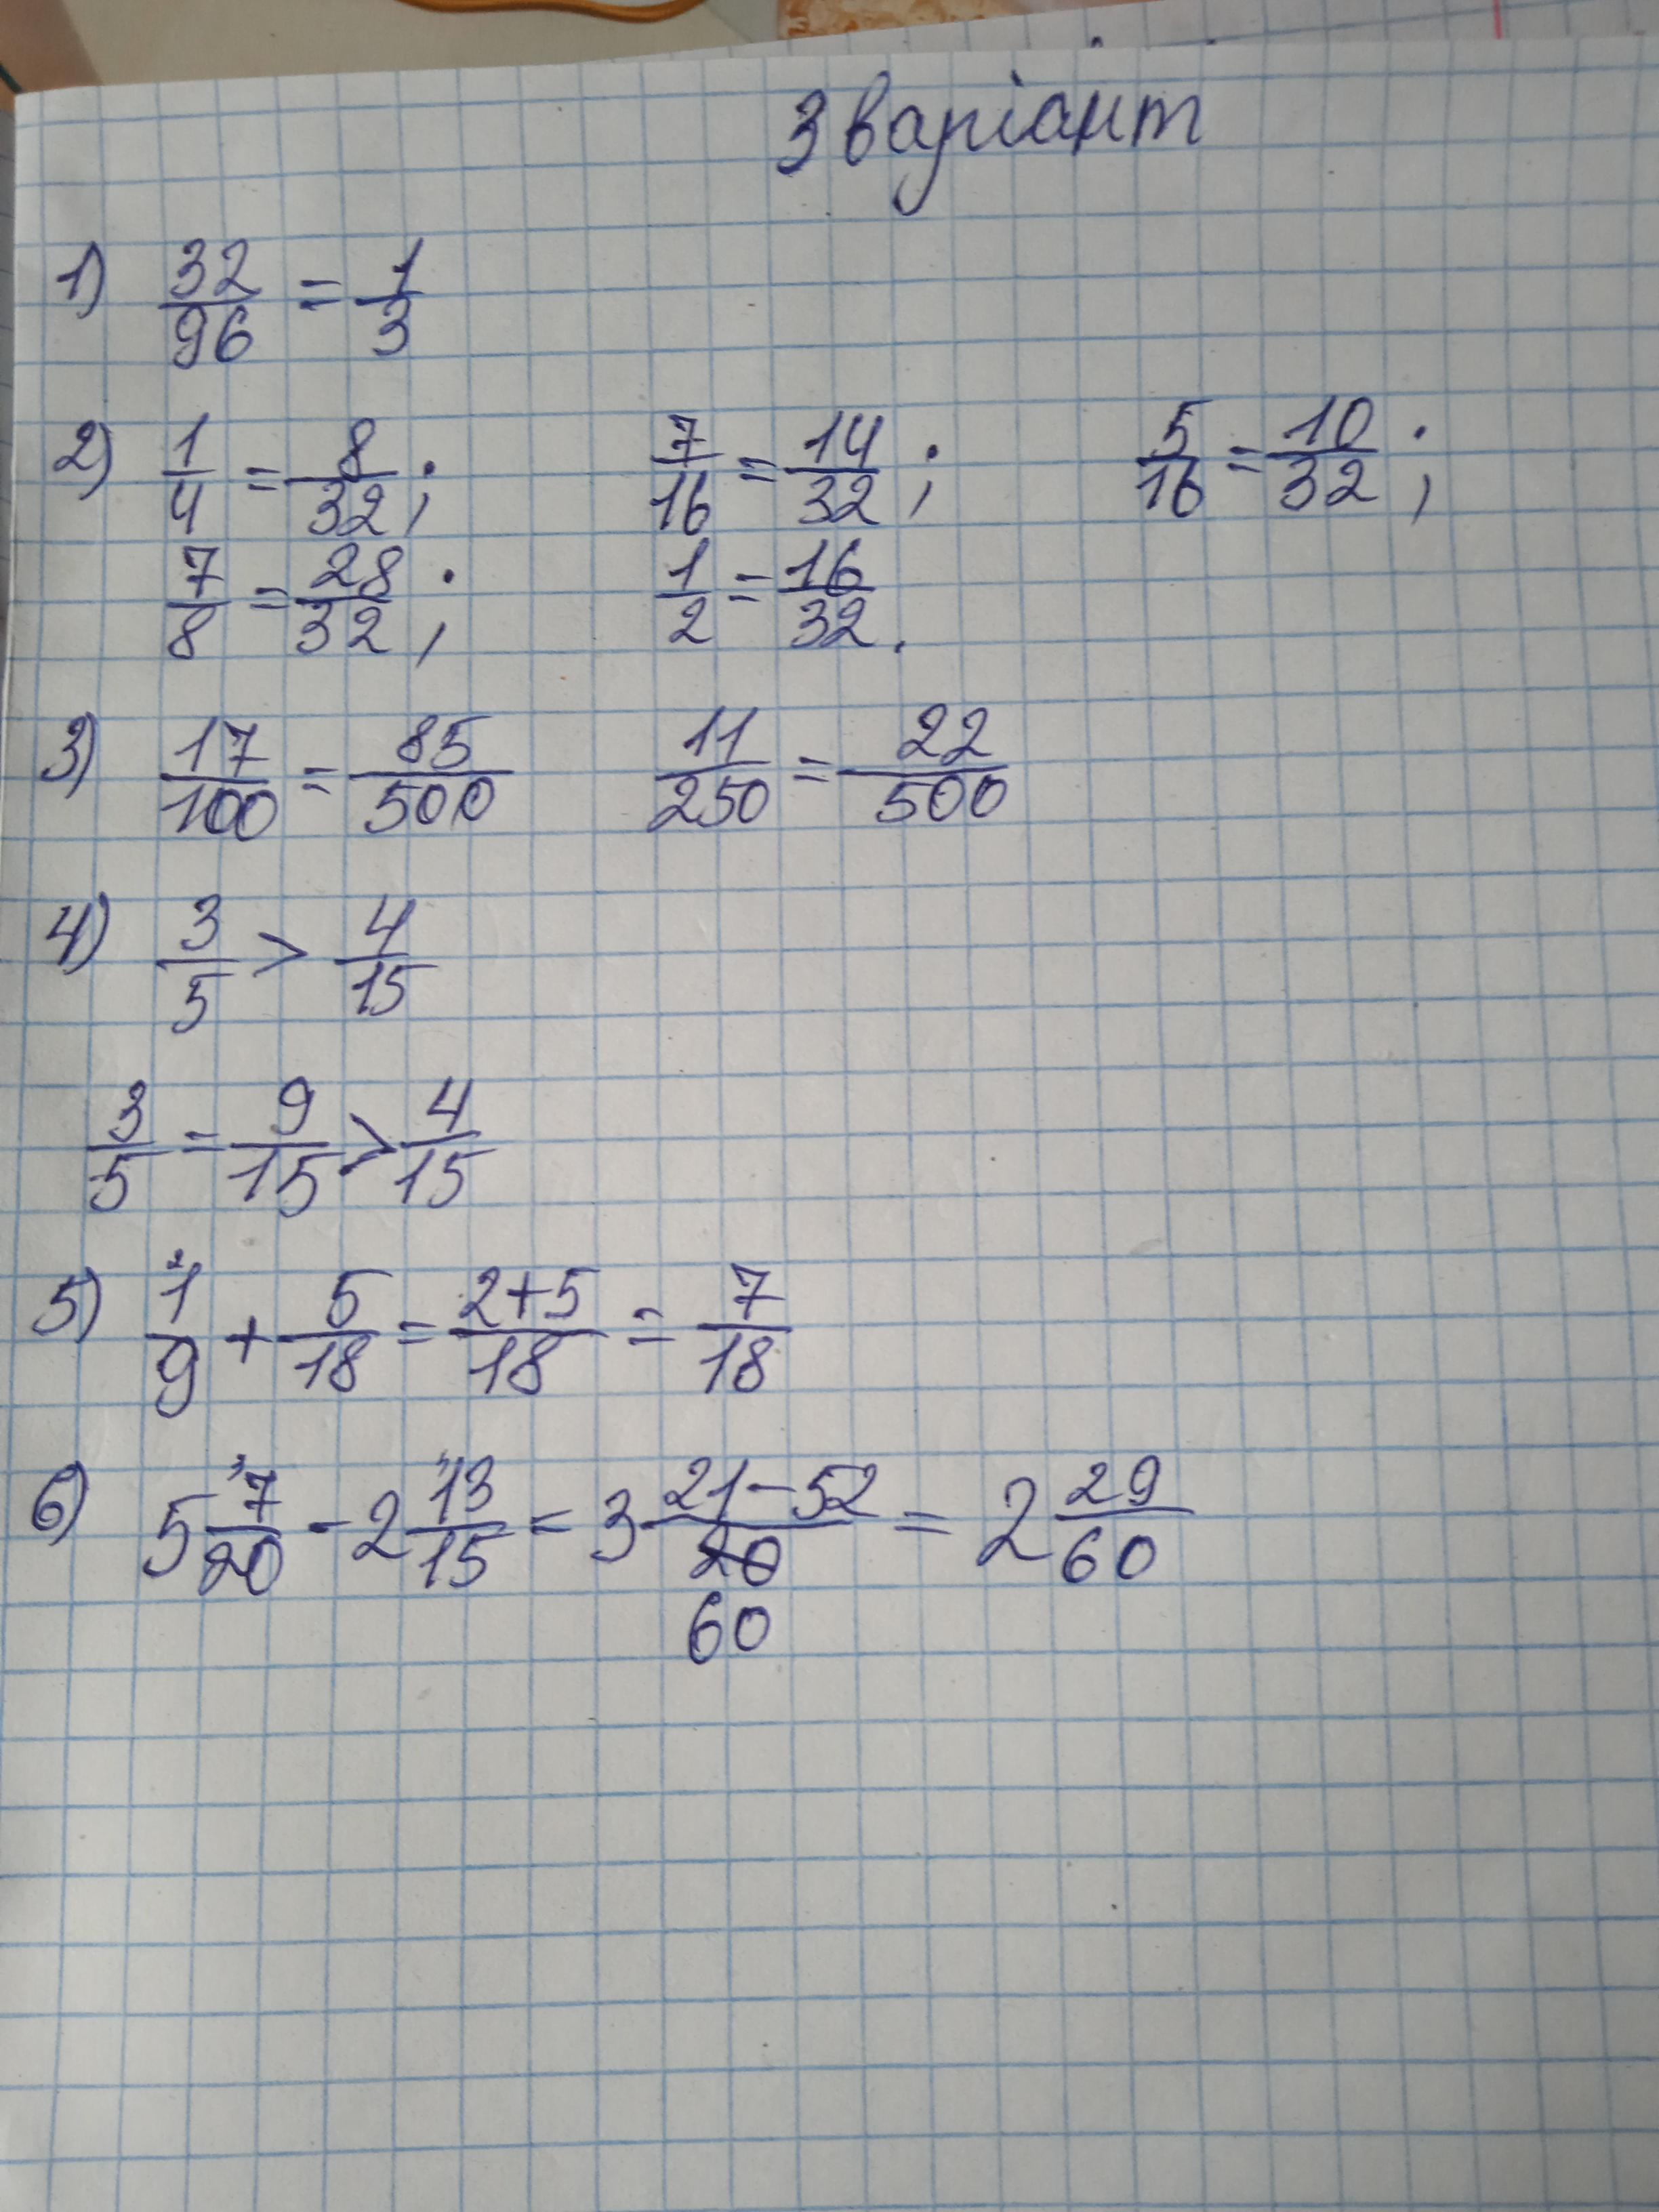 3 варіант
1) 32/96 = 1/3
2) 1/4 = 8/32; 7/16 = 14/32; 5/16 = 10/32;
7/8 = 28/32; 1/2 = 16/32.
3) 17/100 = 85/500 11/250 = 22/500
4) 3/5 > 4/15
3/5 = 9/15 > 4/15
5) 1/9 + 5/18 = 2+5/18 = 7/18
6) 5 7/20 - 2 13/15 = 3 21-52/60 = 2 29/60